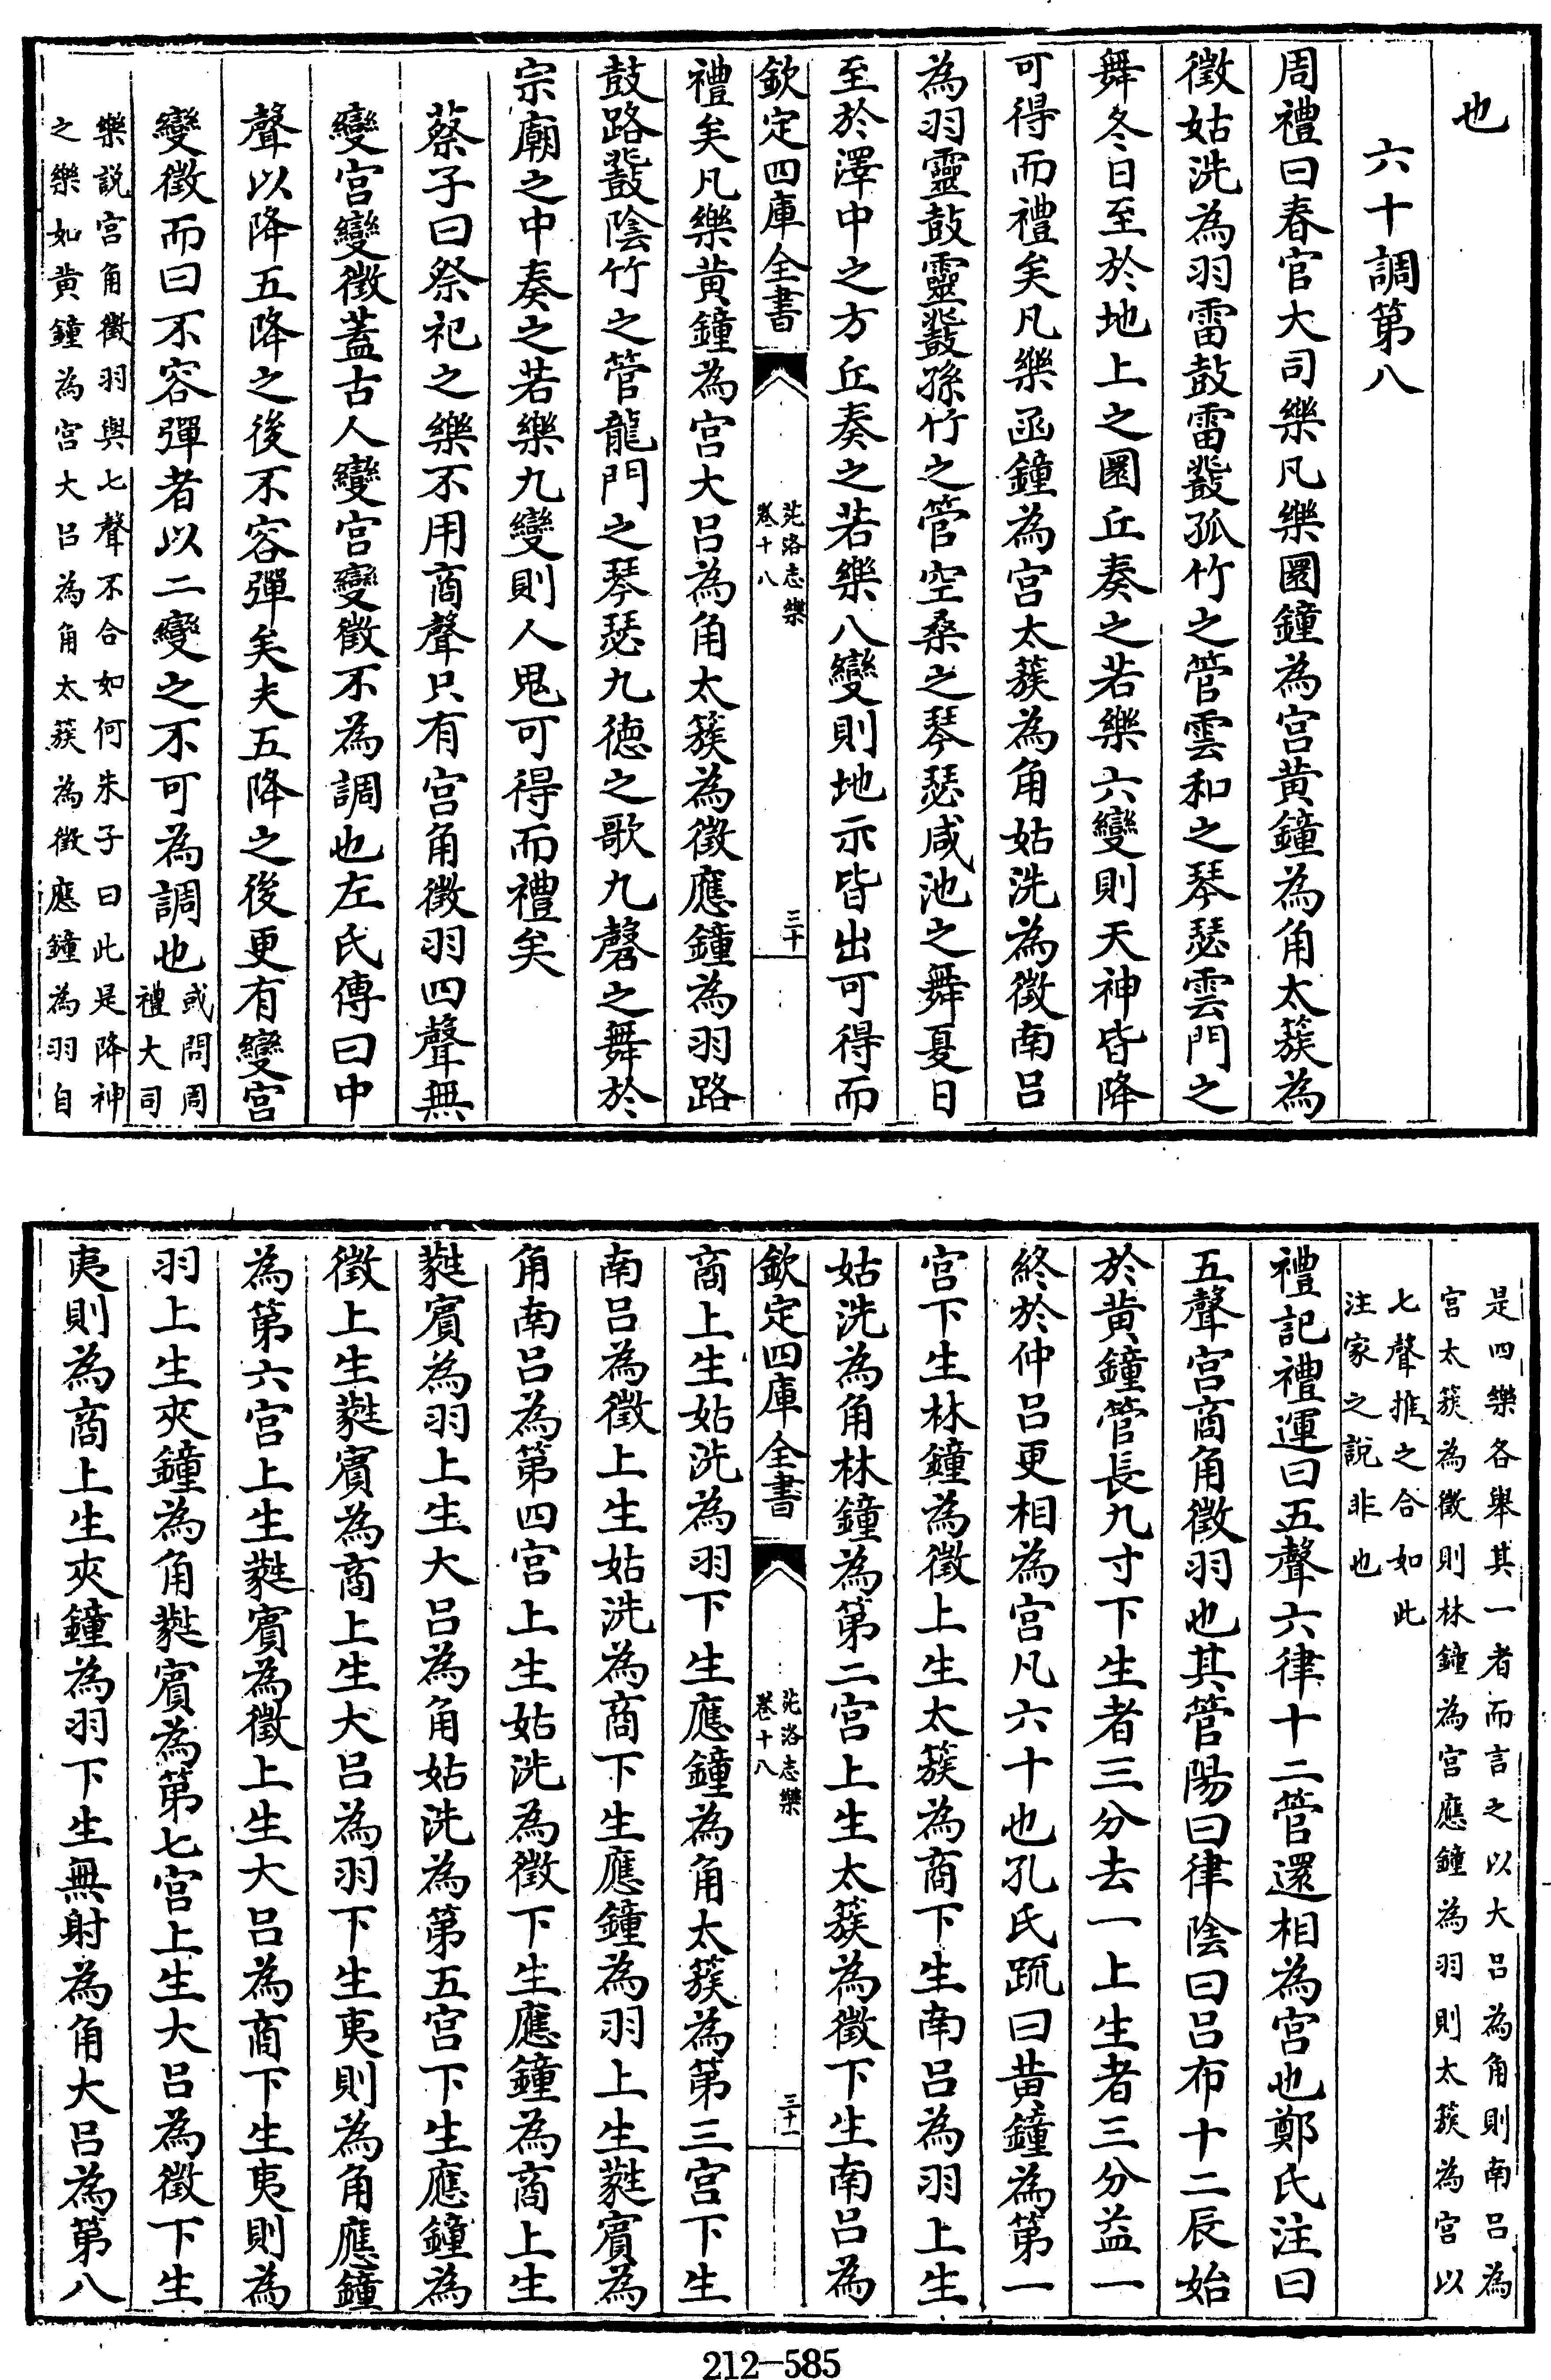 也
六十調第八
周禮曰春官大司樂凡樂圜鐘為宮黃鐘為角太蔟為
徵姑洗為羽雷鼓雷鼗孤竹之管雲和之琴瑟雲門之
舞冬日至於地上之圜丘奏之若樂六變則天神皆降
可得而禮矣凡樂函鐘為宮太蔟為角姑洗為徵南呂
為羽靈鼓靈鼗孫竹之管空桑之琴瑟咸池之舞夏日
至於澤中之方丘奏之若樂八變則地示皆出可得而
欽定四庫全書
苑洛志樂
卷十八
三十
禮矣凡樂黃鐘為宮大呂為角太簇為徵應鐘為羽路
鼓路鼗陰竹之管龍門之琴瑟九德之歌九磬之舞於
宗廟之中奏之若樂九變則人鬼可得而禮矣
蔡子曰祭祀之樂不用商聲只有宮角徵羽四聲無
變宮變徵蓋古人變宮變徵不為調也左氏傳曰中
聲以降五降之後不容彈矣夫五降之後更有變宮
變徵而曰不容彈者以二變之不可為調也或問周
禮大司
樂說宮角徵羽與七聲不合如何朱子曰此是降神
之樂如黃鐘為宮大呂為角太蔟為徵應鐘為羽自
是四樂各舉其一者而言之以大呂為角則南呂為
宮太蔟為徵則林鐘為宮應鐘為羽則太蔟為宮以
七聲推之合如此
注家之說非也
禮記禮運曰五聲六律十二管還相為宮也鄭氏注曰
五聲宮商角徵羽也其管陽曰律陰曰呂布十二辰始
於黃鐘管長九寸下生者三分去一上生者三分益一
終於仲呂更相為宮凡六十也孔氏疏曰黃鐘為第一
宮下生林鐘為徵上生太簇為商下生南呂為羽上生
姑洗為角林鐘為第二宮上生太簇為徵下生南呂為
欽定四庫全書
苑洛志樂
卷十八
三十一
商上生姑洗為羽下生應鐘為角太蔟為第三宮下生
南呂為徵上生姑洗為商下生應鐘為羽上生蕤賓為
角南呂為第四宮上生姑洗為徵下生應鐘為商上生
蕤賓為羽上生大呂為角姑洗為第五宮下生應鐘為
徵上生蕤賓為商上生大呂為羽下生夷則為角應鐘
為第六宮上生蕤賓為徵上生大呂為商下生夷則為
羽上生夾鐘為角蕤賓為第七宮上生大呂為徵下生
夷則為商上生夾鐘為羽下生無射為角大呂為第八
212-585